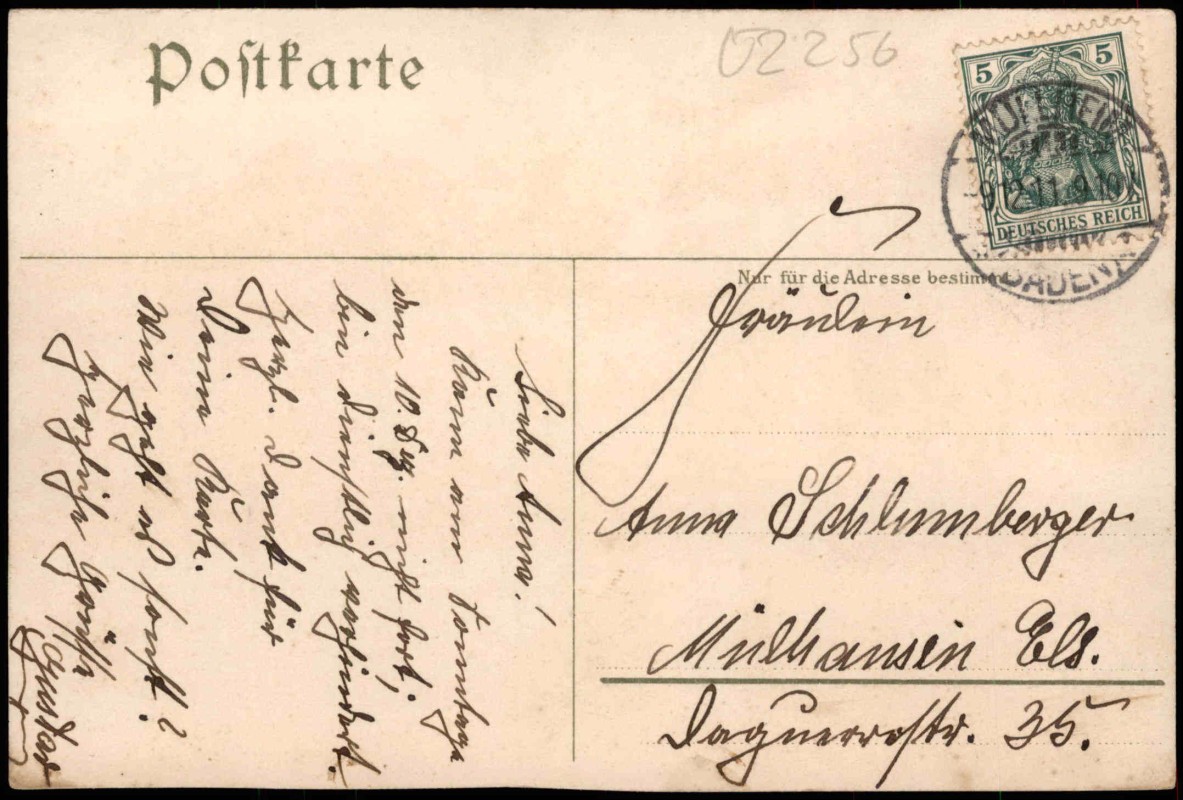 Postkarte
02256
5 5
DEUTSCHES REICH
MÜLLHEIM
-9.12.11.9-10
BADEN
Nur für die Adresse bestimmt
Fräulein
Anna Schlumberger
Mülhausen Els.
Daguerrestr. 35.
Liebe Anna!
Kann am Sonntage
den 10. Dez. nicht fort,
bin dienstlich verhindert.
Herzl. Dank für
Deine Karte.
Wie geht es sonst?
Herzliche Grüße
Gustav